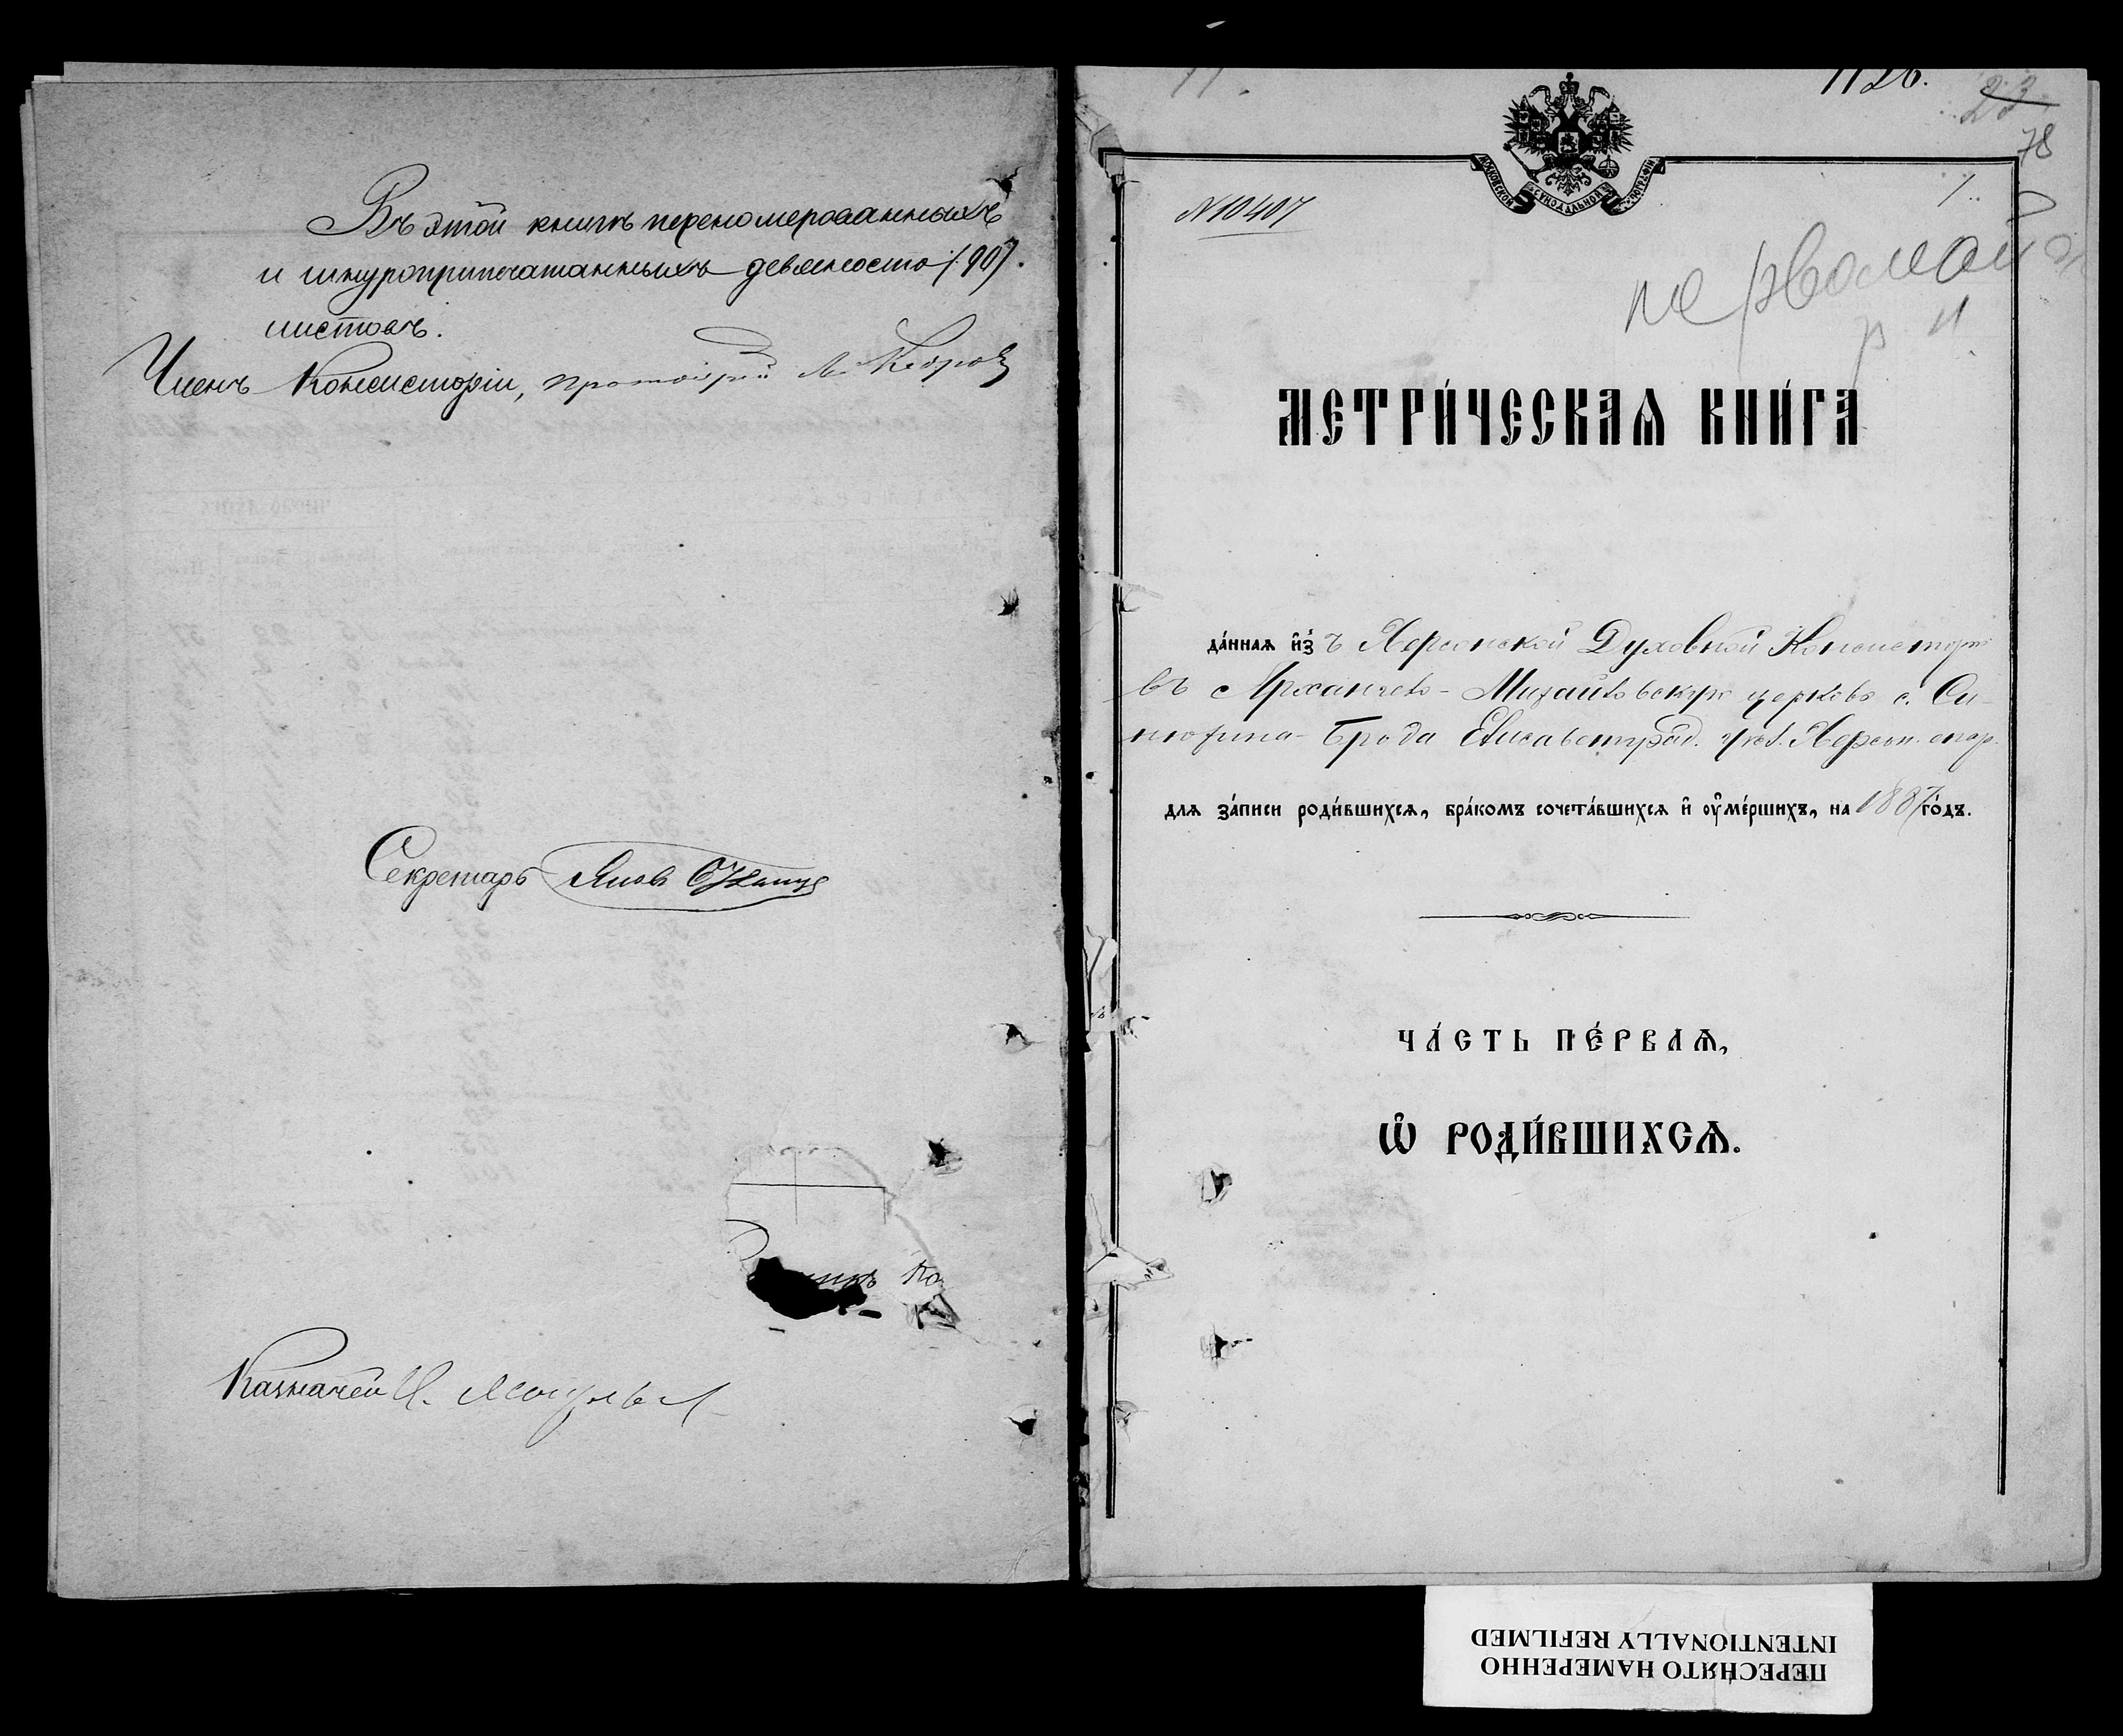 Въ этой книгѣ перенумерованныхъ
и шнуроприпечатанныхъ девяносто /90/.
листовъ.
Членъ Консисторіи, протоіерей
Секретарь
Ко
Казначей
1126.
23
78
МОСКОВСКОЙ СѴНОДАЛЬНОЙ ТѴПОГРАФІИ
№ 10407
1.
первомай
р н
МЕТРИ́ЧЕСКАѦ КНИ́ГА
да́нная и҆з̾ ъ Херсонской Духовной Консисторіи
въ Архангело-Михайловскую церковь с. Си-
нюхина-Брода Елисаветград. уѣз. Херсон. епар.
для за́писи роди́вшихся, бра́комъ сочета́вшихся и҆ оу҆ме́ршихъ, на 1887 го́дъ.
ЧА́СТЬ ПЕ́РВАѦ,
Ѡ҆ РОДИ́ВШИХСѦ.
ПЕРЕСНЯТО НАМЕРЕННО
INTENTIONALLY REFILMED